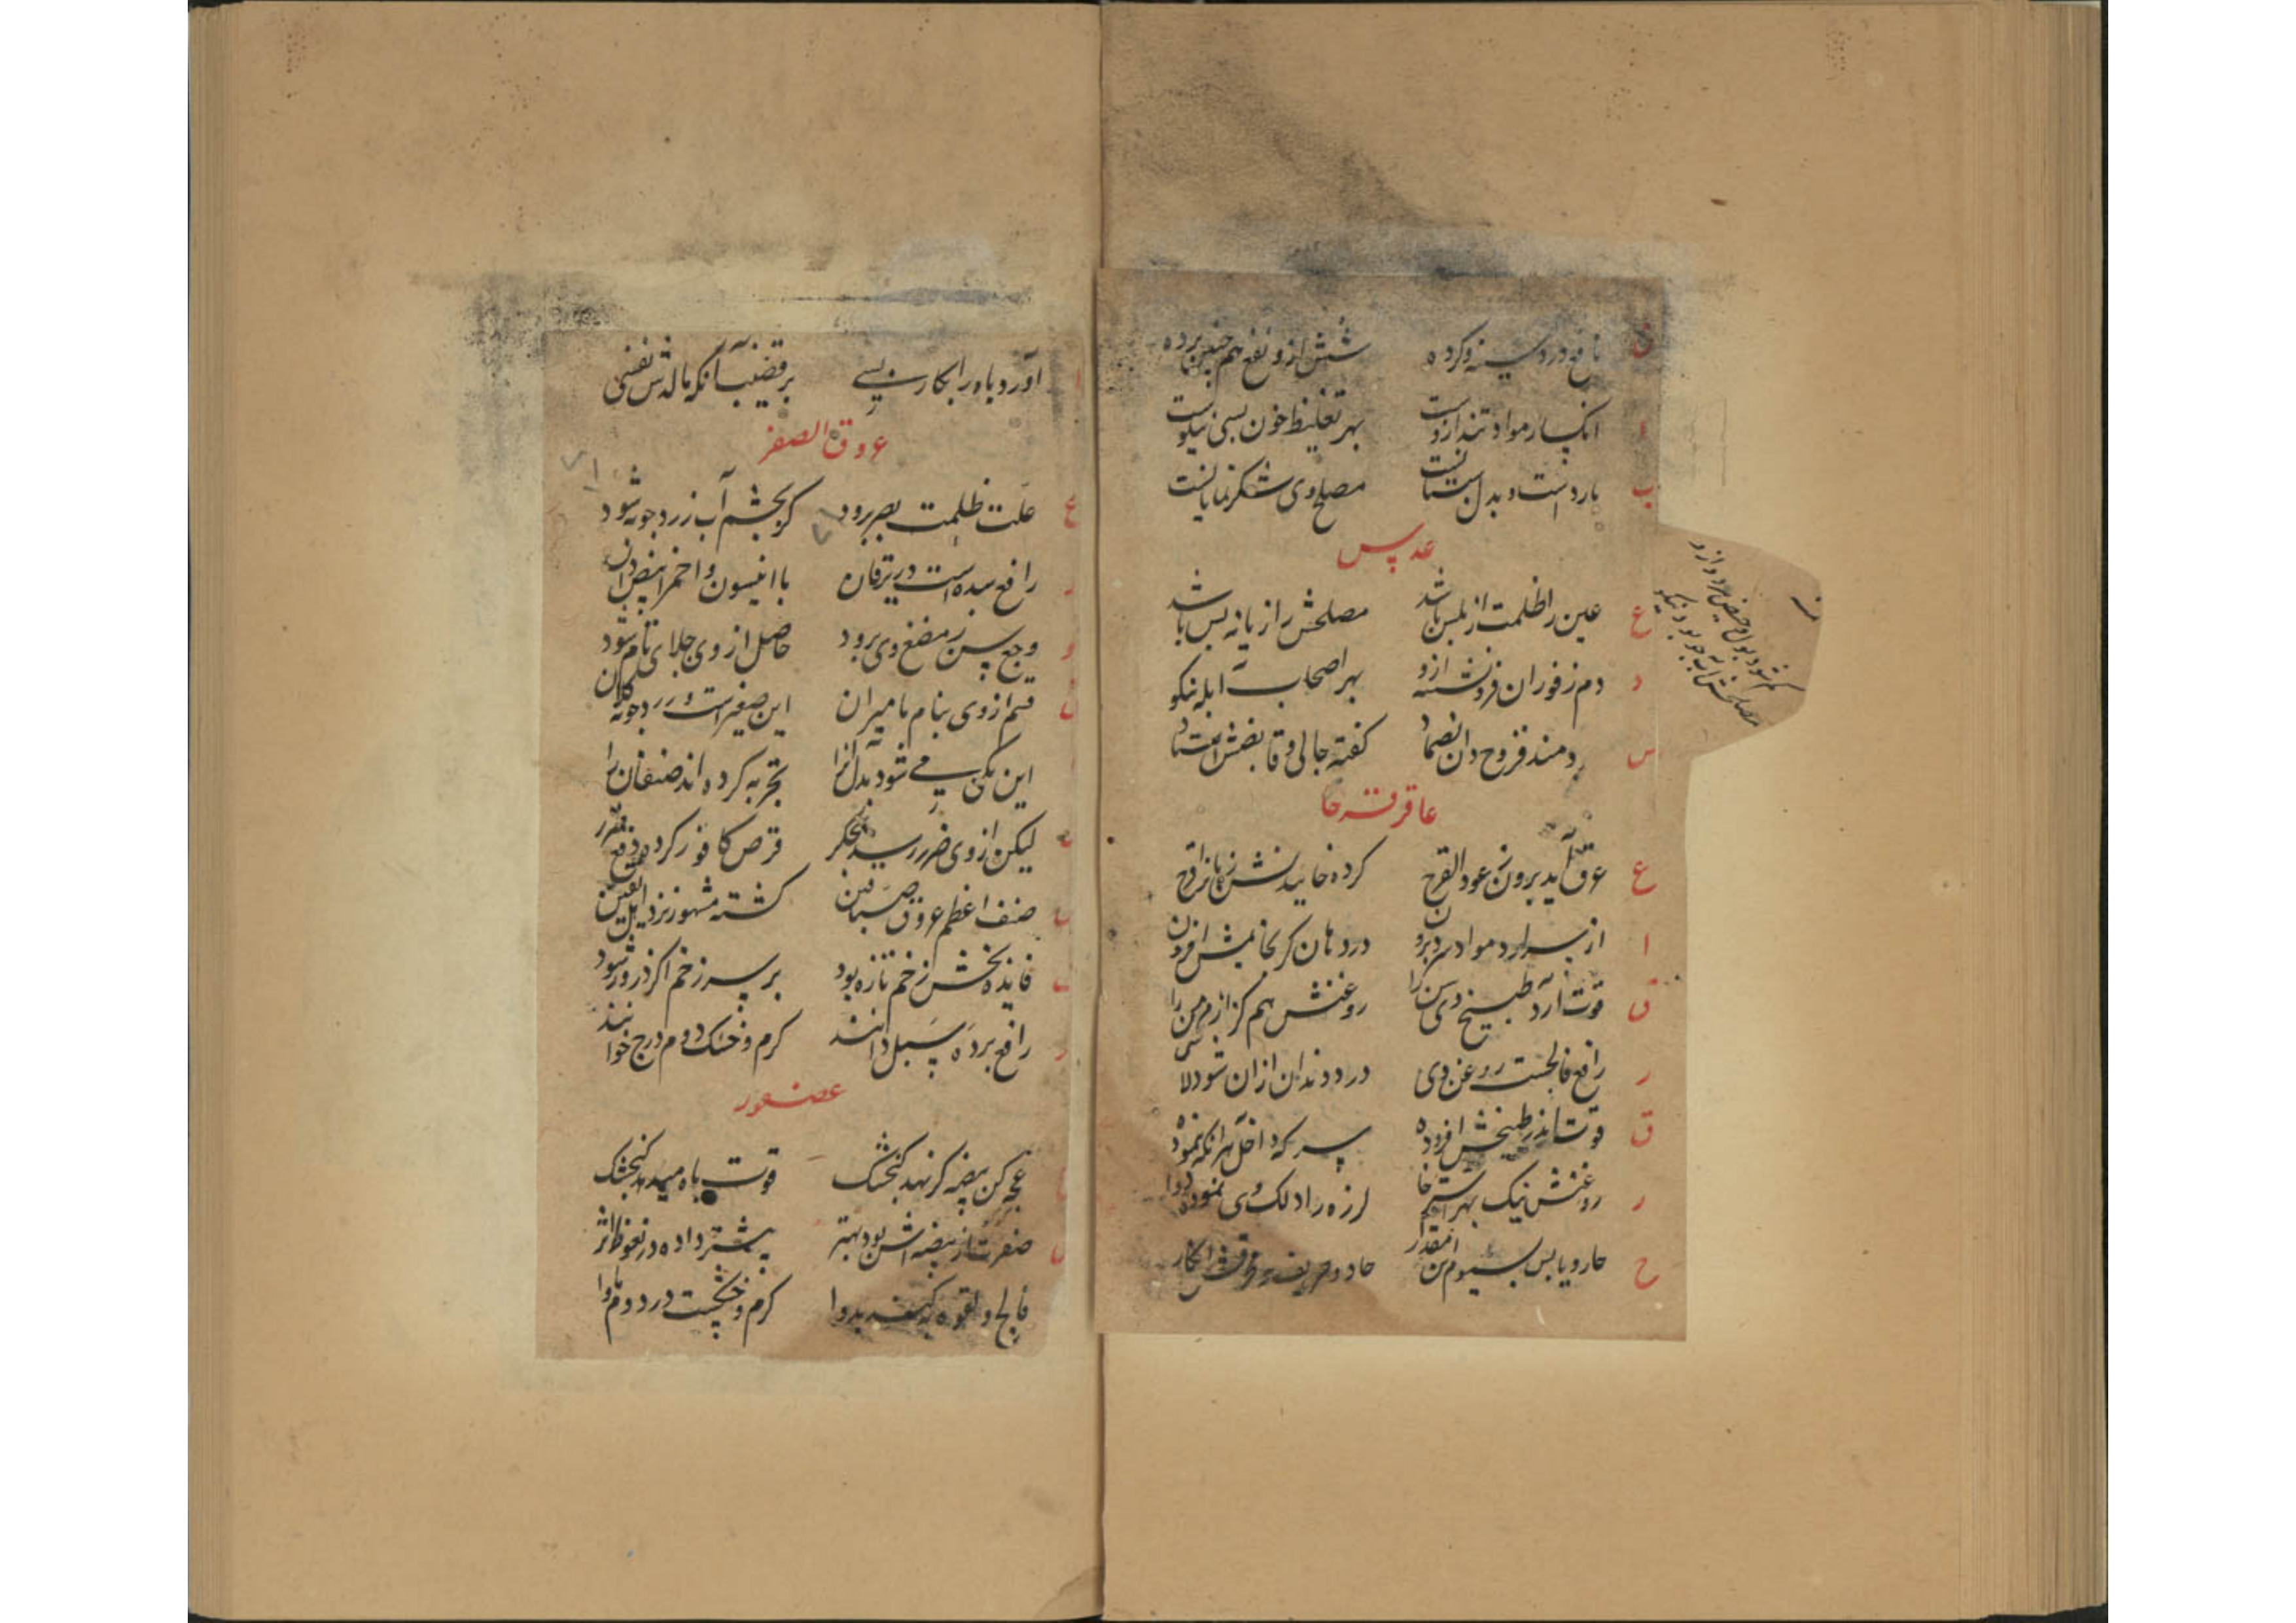 ن نافع درد سینه و کرده شش ازو نفع هم چنین برده
ا انکسار مواد تند ازوست بهر تغلیظ خون بسی نیکوست
ب باردست و بدل مصلح وی شکر نمایانست
عدس
ع عین را ظلمت از عدس باشد مصلحش رازیانه بس باشد
د دم ز فوران فرو نشسته ازو بهر اصحاب آبله نیکو
س سودمند قروح دان بضماد گفته جالی و قابضش استاد
عاقرقرحا
ع عرق آید برون ز عود القرح کرده خاییدنش
ا از سر ارد مواد سرد برون در دهان گر بخایمش افزون
ق قوت آرد طبیخ وی سن را روغنش هم کزاز مزمن را
ر رافع فالجست روغن وی درد دندان ازان شود لاشی
ق قوت اندر طبیخش افزوده سرکه داخل هر آنکه نموده
ر روغنش نیک بهر استرخا لرزه را دلک وی نموده دوا
ح حار و یابس سیوم من مقدار حاد و حریف و محرقش انگار
کم شود بول و حیض مرد ازو
مصلحش آب جو بود نیکو
ا آورد باه را بکار بسی بر قضیب آنکه مالدش نفسی
عروق الصفر
ع علت ظلمت بصر برود گر بچشم آب زردچوبه شود
ر رافع سده است در یرقان با انیسون و اخمر ابیض دان
و وجع سن ز مضغ وی برود حاصل از وی جلای تام شود
ق قسم از وی بنام مامیران این صغیرست و زردچوبه کلان
ا این یکی می شود بدل آنرا تجربه کرده اند صنفان را
ل لیکن از وی ضرر رسد بجگر قرص کافور کرده دفع ضرر
ص صنف اعظم عروق صباغین گشته مشهور نزد اهل یقین
ف فایده بخش زخم تازه بود بر سر زخم اگر ذرور شود
ر رافع برده سبل دانند گرم و خشک دوم درج خوانند
عصفور
ع عجه کن بیضه گر نهد گنجشک قوت باه میدهد گنجشک
ص صفرت از بیضه اش بود بهتر بیشتر داده در نعوظ اثر
ف فالج و لقوه به کند بدوا گرم و خشکست در دوم ماوا